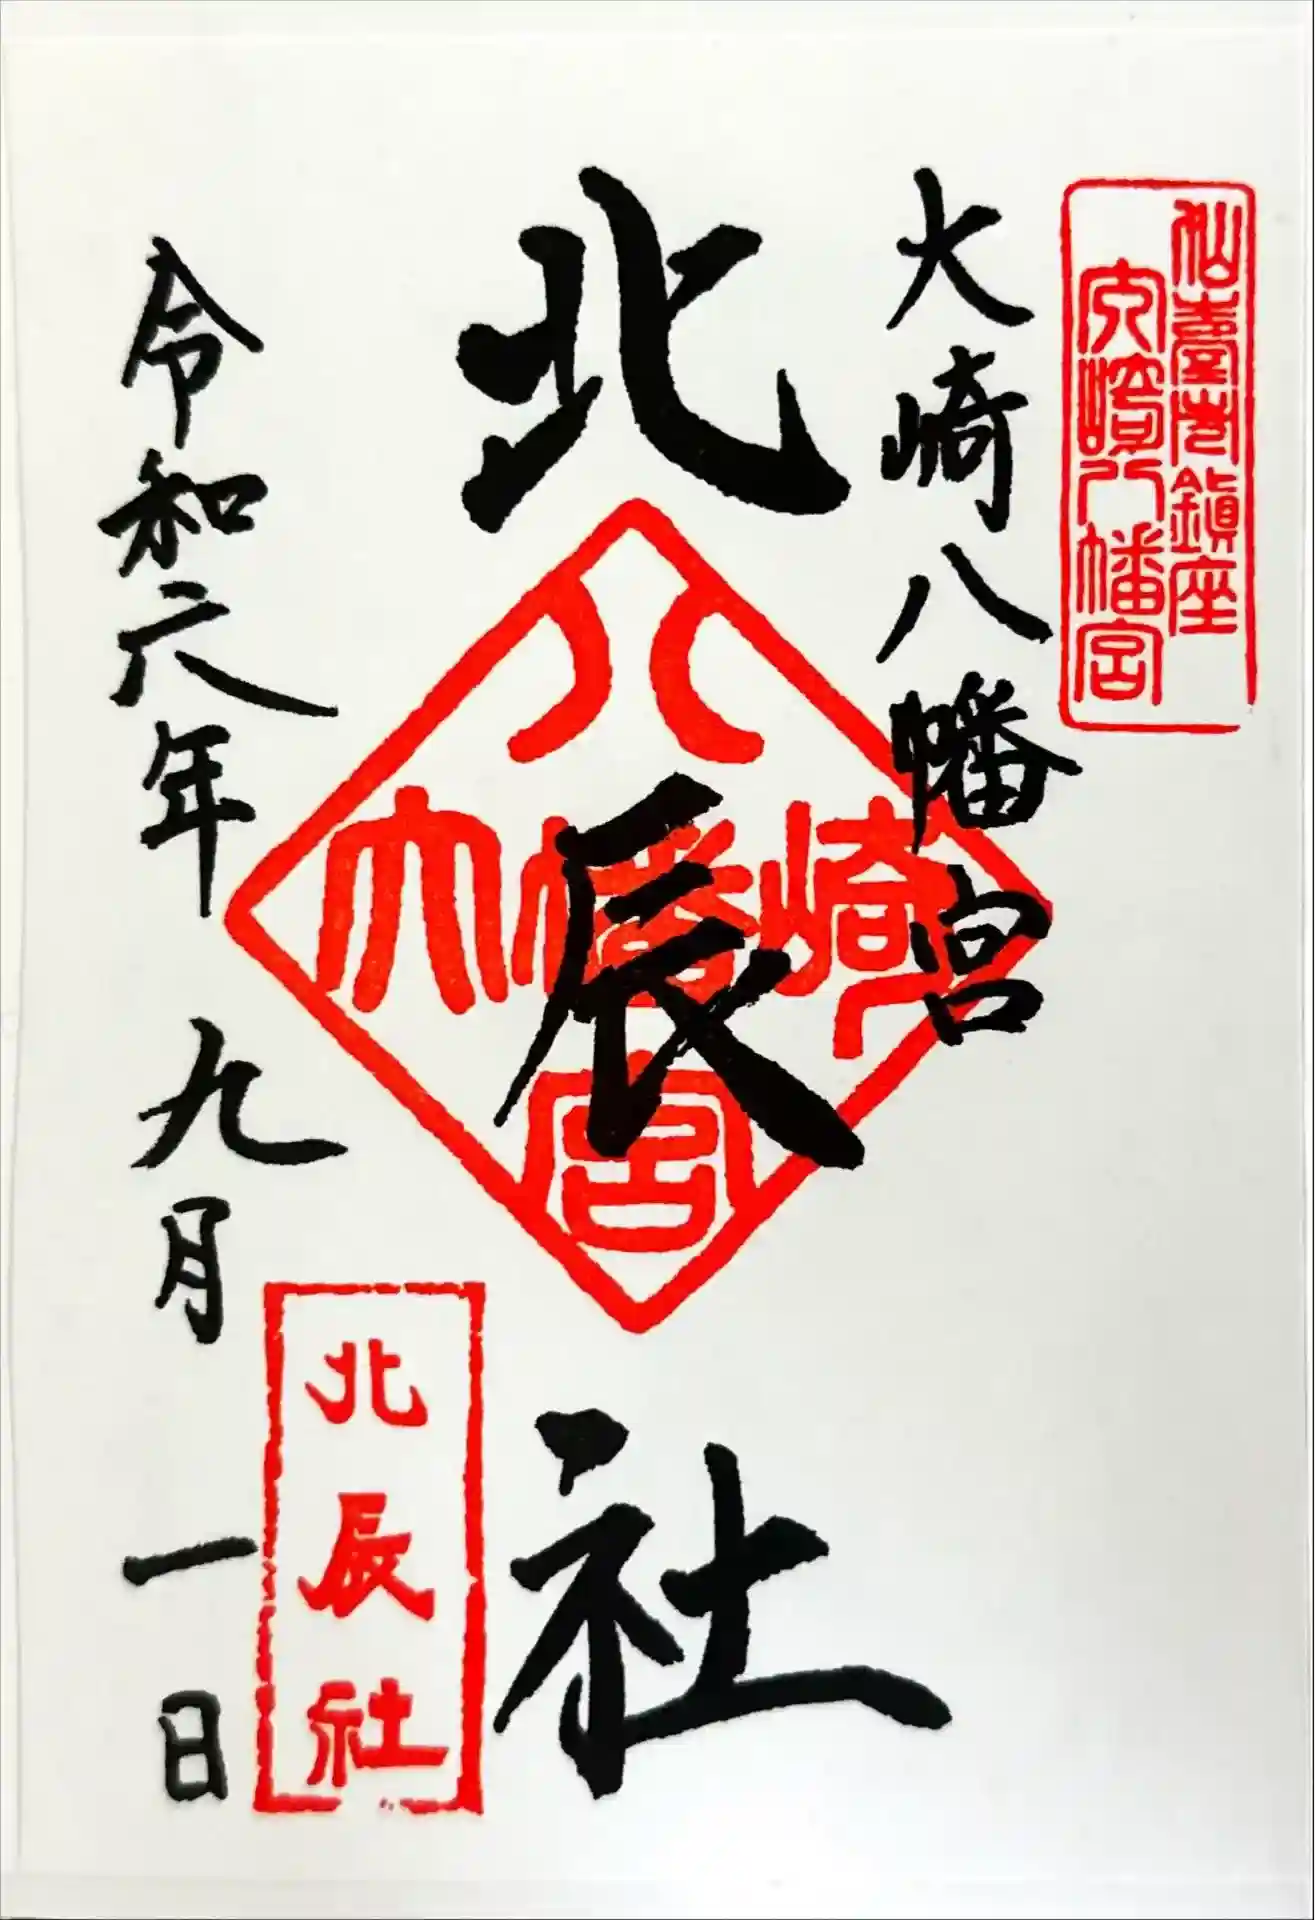 仙臺市鎮座
大崎八幡宮
大崎八幡宮
北辰社
大崎八幡宮
北辰社
令和六年九月一日